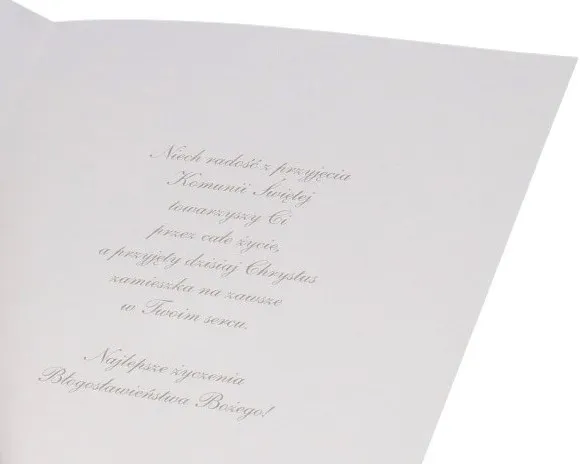 Niech radość z przyjęcia
Komunii Świętej
towarzyszy Ci
przez całe życie,
a przyjęty dzisiaj Chrystus
zamieszka na zawsze
w Twoim sercu.
Najlepsze życzenia
Błogosławieństwa Bożego!